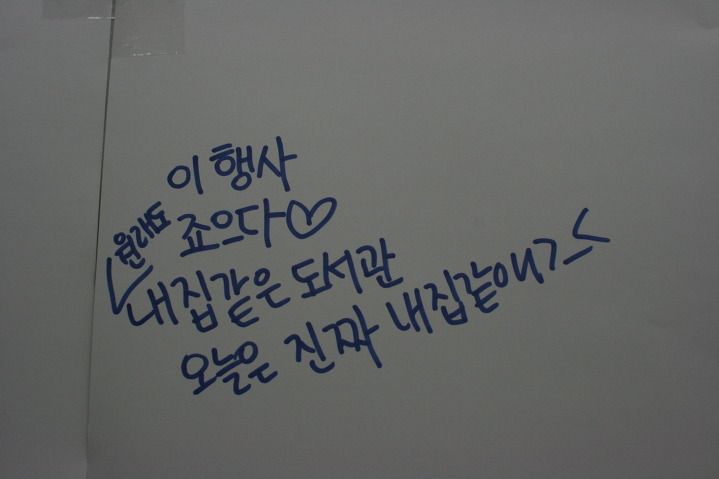 이 행사
죠으다♡
원래도
내집같은 도서관
오늘은 진짜 내집같애 >_<